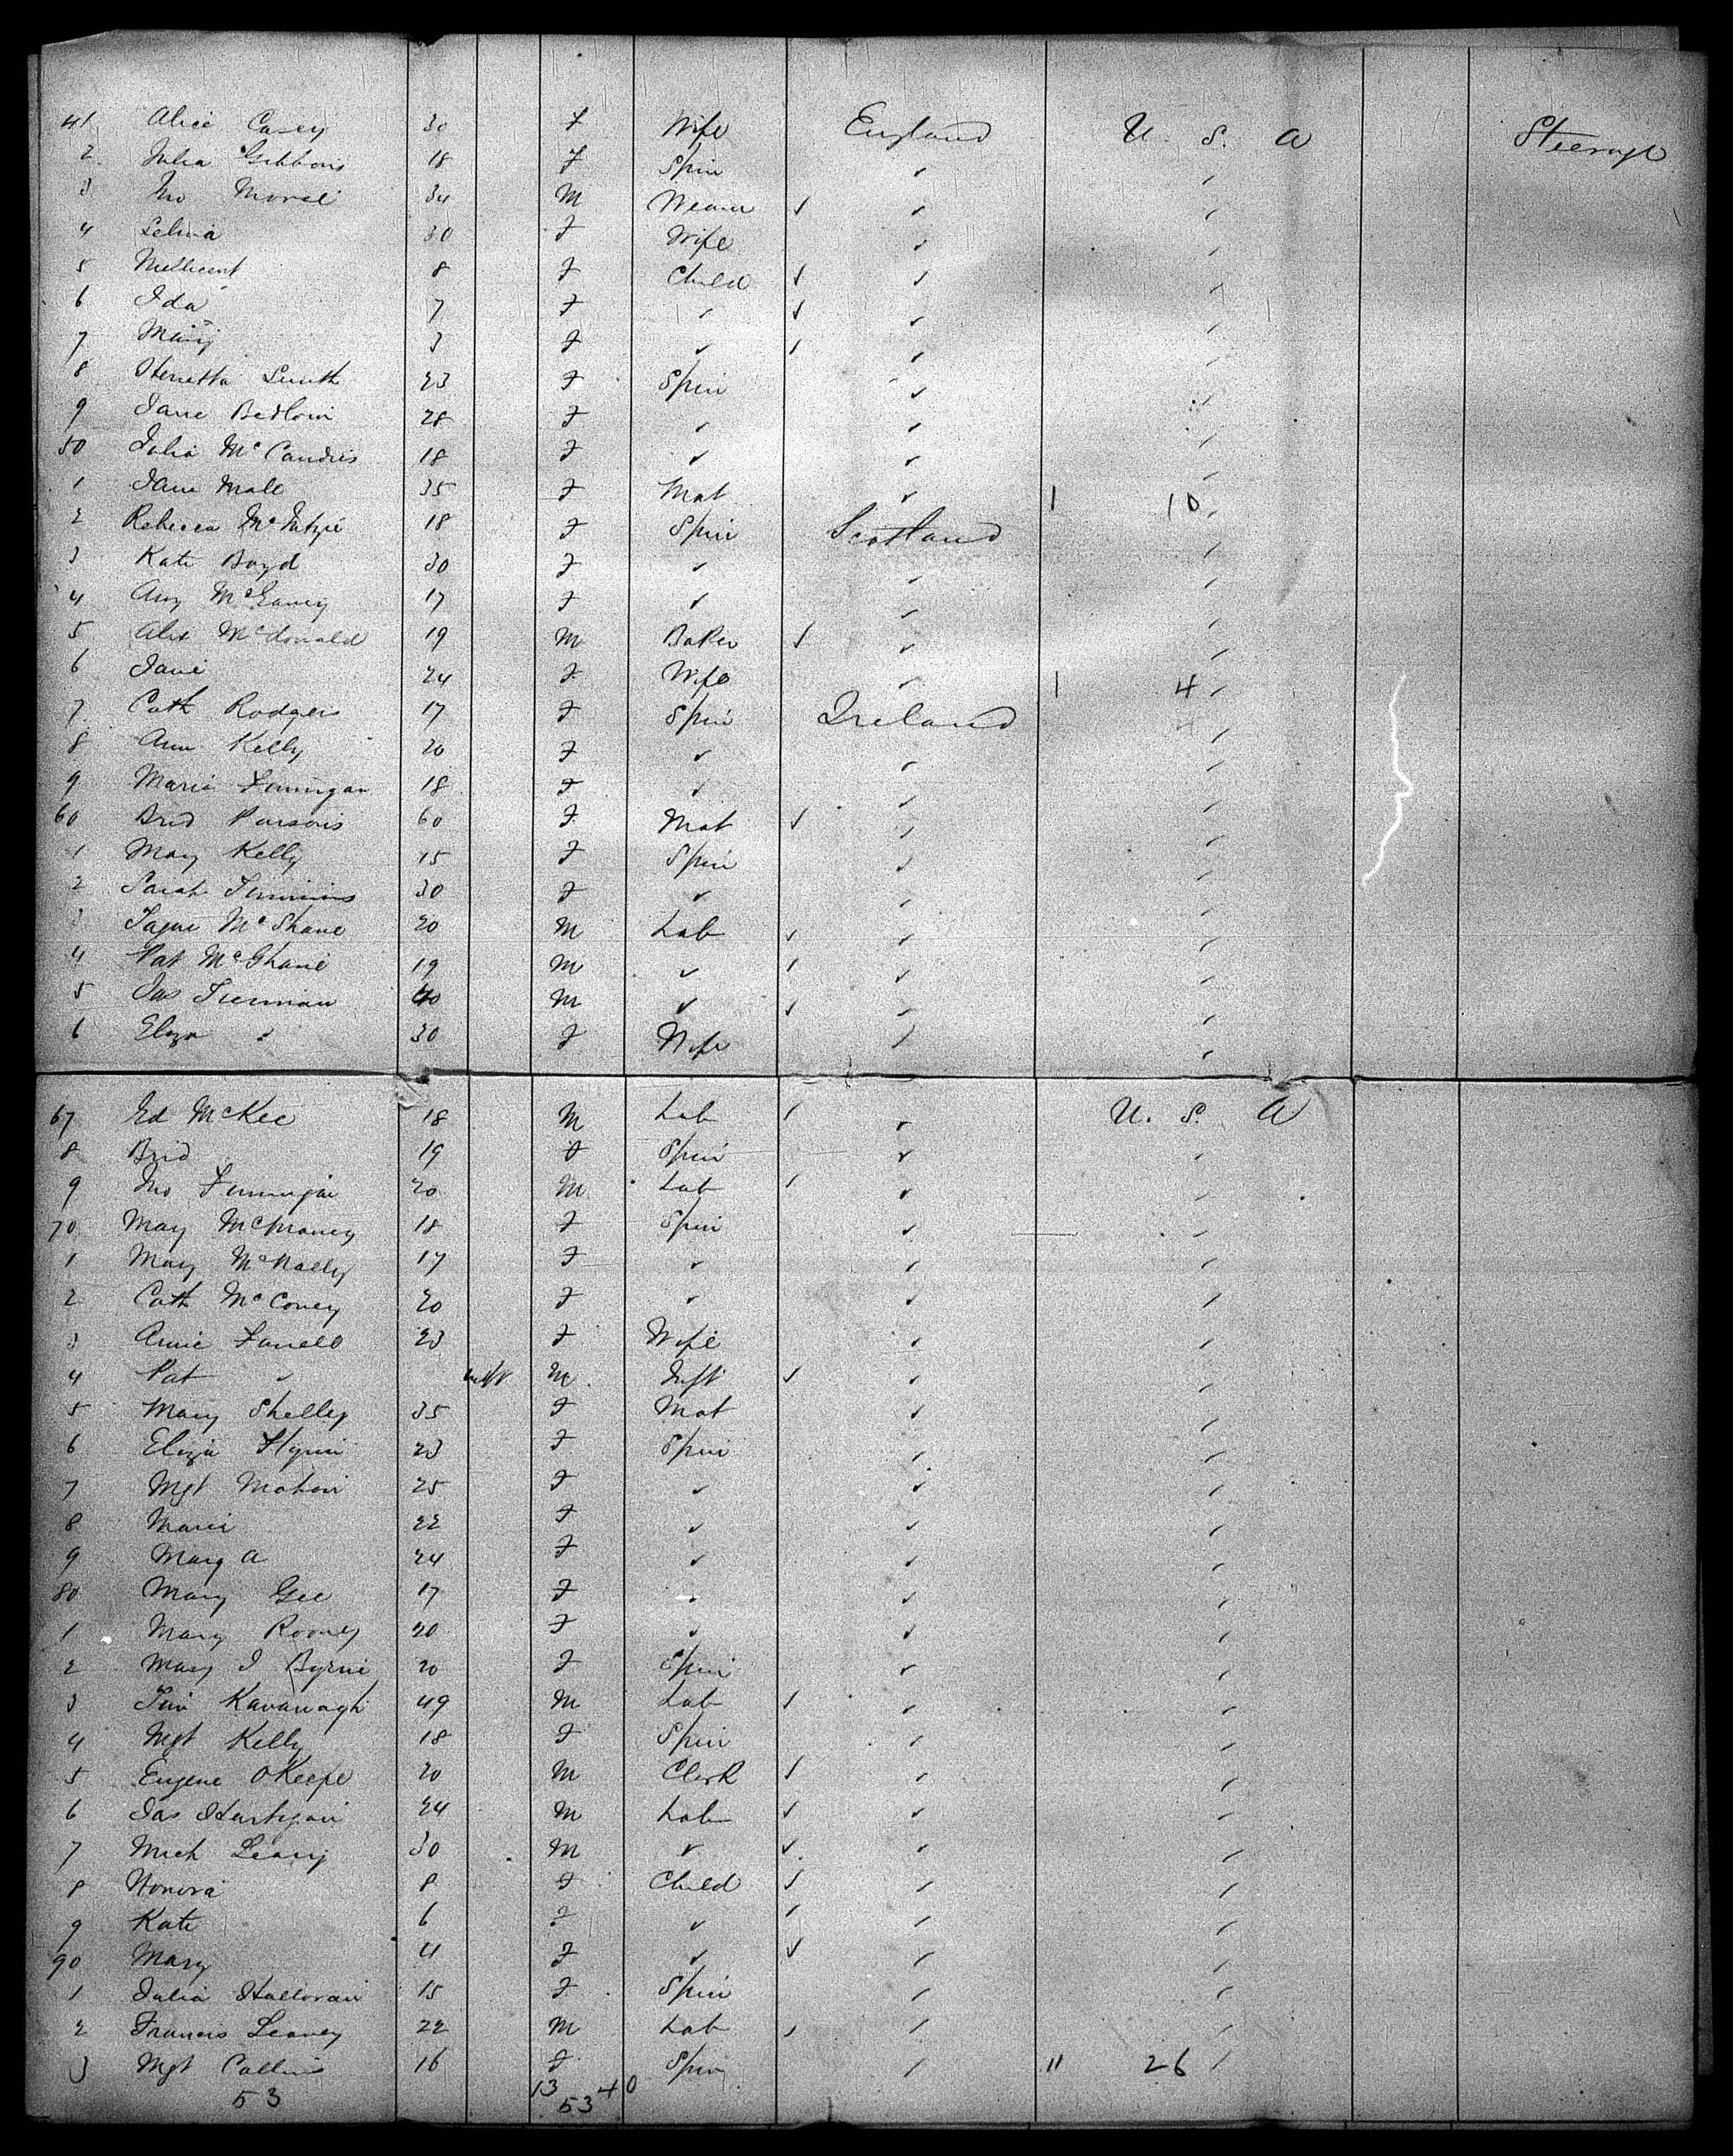 41 Alice Casey 30 F Wife England U. S. A Steerage
2 Julia Gibbons 18 F Spin ✓ ✓
3 Jno Morse 34 M ✓ ✓
4 Selina 30 F Wife ✓ ✓
5 Mellicent 8 F Child ✓ ✓
6 Ida 7 F ✓ ✓ ✓
7 Mary 3 F ✓ ✓ ✓
8 Henretta Smith 23 F Spin ✓ ✓
9 Jane 28 F ✓ ✓ ✓
50 Julia 18 F ✓ ✓ ✓
1 Jane Male 35 F Mat ✓ 1 10 ✓
2 Rebecca 18 F Spin Scotland ✓
3 Kate Boyd 30 F ✓ ✓ ✓
4 17 F ✓ ✓ ✓
5 Alex McDonald 19 M Baker ✓ ✓
6 Jane 24 F Wife ✓ 1 4 ✓
7 Cath Rodgers 17 F Spin Ireland ✓
8 Ann Kelly 20 F ✓ ✓ ✓
9 Maria 18 F ✓ ✓ ✓
60 Brid Parsons 60 F Mat ✓ ✓
1 May Kelly 15 F Spin ✓ ✓
2 Sarah Timmins 30 F ✓ ✓ ✓
3 McShane 20 M Lab ✓ ✓
4 Pat McShane 19 M ✓ ✓ ✓
5 Jas 40 M ✓ ✓ ✓
6 Eliza " 30 F Wife ✓ ✓
67 Ed McKee 18 M Lab ✓ U. S. A
8 Brid 19 F Spin ✓ ✓
9 Jno 20 M Lab ✓ ✓
70 May 18 F Spin ✓ ✓
1 May McNally 17 F ✓ ✓ ✓
2 Cath McConey 20 F ✓ ✓ ✓
3 Annie Farrell 23 F Wife ✓ ✓
4 Pat " M Inft ✓ ✓
5 Mary Shelley 35 F Mat ✓ ✓
6 Eliza Flynn 23 F Spin ✓ ✓
7 Mgt Mahon 25 F ✓ ✓ ✓
8 Maria 22 F ✓ ✓ ✓
9 Mary A 24 F ✓ ✓ ✓
80 Mary Gee 17 F ✓ ✓ ✓
1 Mary Rooney 20 F ✓ ✓ ✓
2 Mary J Byrne 20 F Spin ✓ ✓
3 Tim Kavanagh 49 M Lab ✓ ✓
4 Mgt Kelly 18 F Spin ✓ ✓
5 Eugene OKeefe 20 M Clerk ✓ ✓
6 Jas Hartigan 24 M Lab ✓ ✓
7 Mich Leary 30 M ✓ ✓ ✓
8 Honora 8 F Child ✓ ✓
9 Kate 6 F ✓ ✓ ✓
90 Mary 4 F ✓ ✓ ✓
1 Julia Halloran 15 F Spin ✓ ✓
2 Francis Leavey 22 M Lab ✓ ✓
3 Mgt Collins 16 F Spin ✓ 11 26 ✓
13 40
53 53